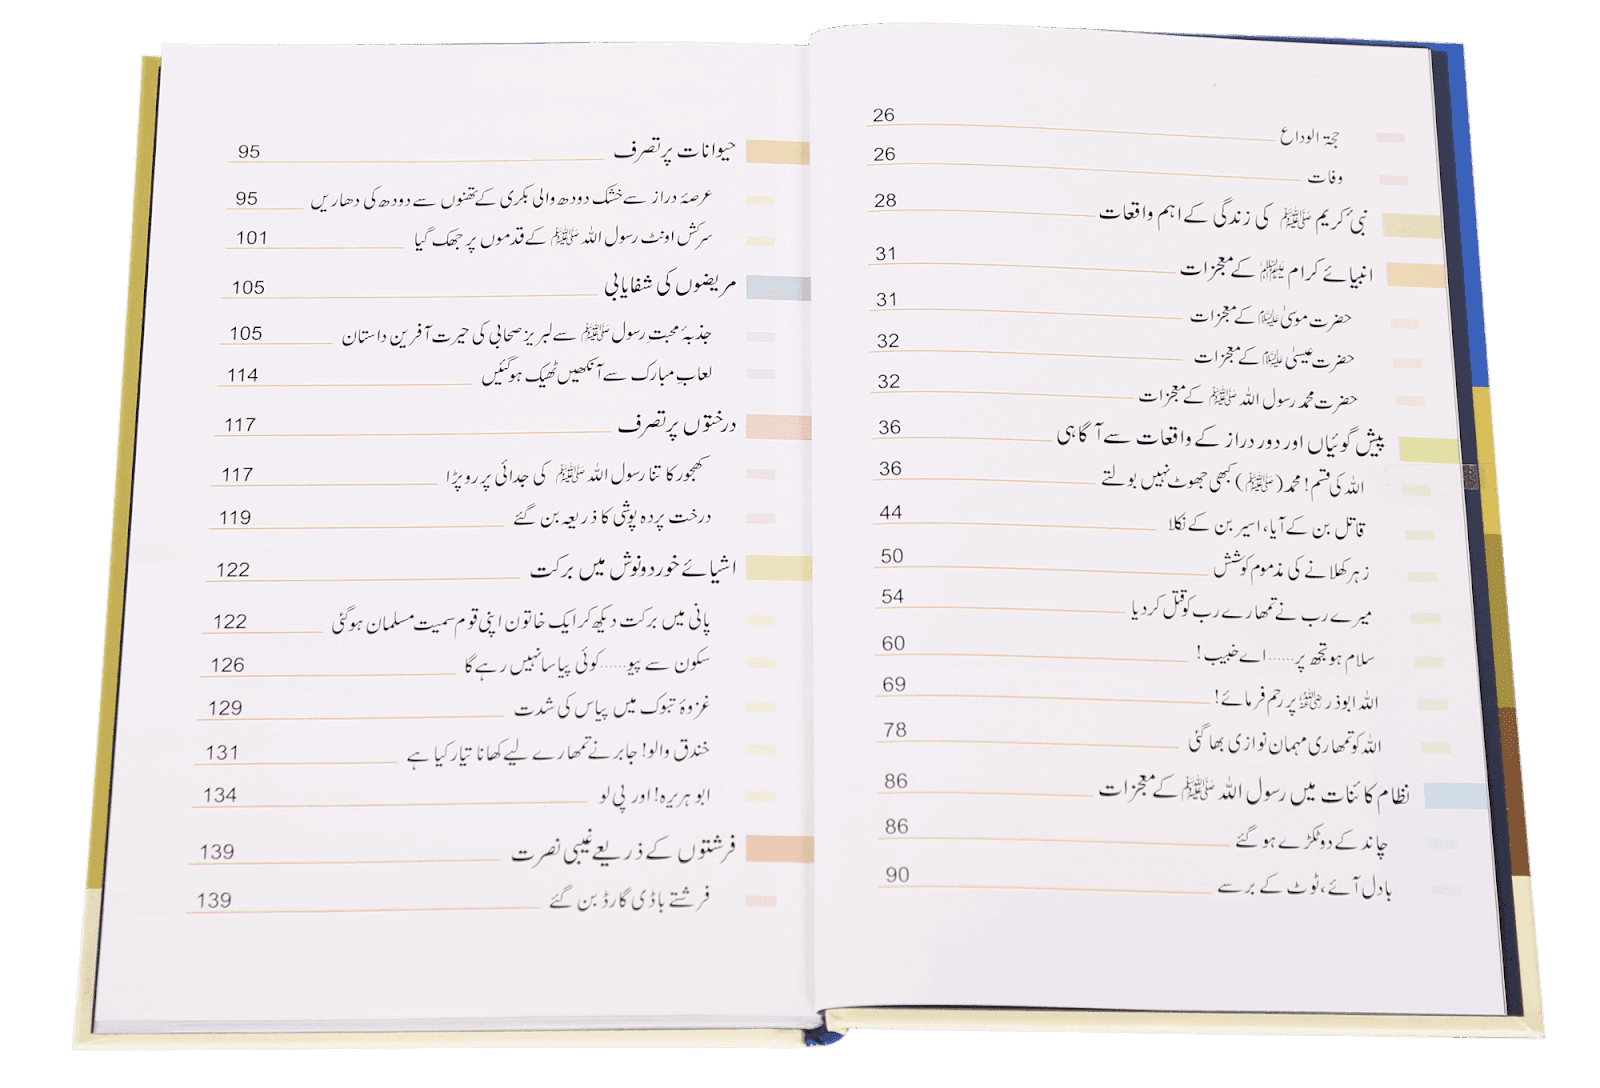 حجۃ الوداع 26
وفات 26
نبیٔ کریم ﷺ کی زندگی کے اہم واقعات 28
انبیائے کرام علیہم السلام کے معجزات 31
حضرت موسیٰ علیہ السلام کے معجزات 31
حضرت عیسیٰ علیہ السلام کے معجزات 32
حضرت محمد رسول اللہ ﷺ کے معجزات 32
پیش گوئیاں اور دور دراز کے واقعات سے آگاہی 36
اللہ کی قسم! محمد (ﷺ) کبھی جھوٹ نہیں بولتے 36
قاتل بن کے آیا، اسیر بن کے نکلا 44
زہر کھلانے کی مذموم کوشش 50
میرے رب نے تمھارے رب کو قتل کر دیا 54
سلام ہو تجھ پر...... اے خبیب! 60
اللہ ابوذر رضی اللہ عنہ پر رحم فرمائے! 69
اللہ کو تمھاری مہمان نوازی بھا گئی 78
نظام کائنات میں رسول اللہ ﷺ کے معجزات 86
چاند کے دو ٹکڑے ہو گئے 86
بادل آئے، ٹوٹ کے برسے 90
حیوانات پر تصرف 95
عرصۂ دراز سے خشک دودھ والی بکری کے تھنوں سے دودھ کی دھاریں 95
سرکش اونٹ رسول اللہ ﷺ کے قدموں پر جھک گیا 101
مریضوں کی شفایابی 105
جذبۂ محبتِ رسول ﷺ سے لبریز صحابی کی حیرت آفرین داستان 105
لعابِ مبارک سے آنکھیں ٹھیک ہو گئیں 114
درختوں پر تصرف 117
کھجور کا تنا رسول اللہ ﷺ کی جدائی پر رو پڑا 117
درخت پردہ پوشی کا ذریعہ بن گئے 119
اشیائے خورد و نوش میں برکت 122
پانی میں برکت دیکھ کر ایک خاتون اپنی قوم سمیت مسلمان ہو گئی 122
سکون سے پیو...... کوئی پیاسا نہیں رہے گا 126
غزوۂ تبوک میں پیاس کی شدت 129
خندق والو! جابر نے تمھارے لیے کھانا تیار کیا ہے 131
ابو ہریرہ! اور پی لو 134
فرشتوں کے ذریعے غیبی نصرت 139
فرشتے باڈی گارڈ بن گئے 139